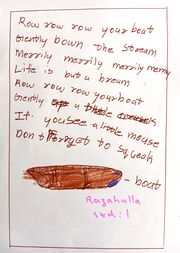 Row row row your boat
Gently bown the stream
Merrily merrily merrily merrily
Life is but a bream
Row row row your boat
Gently a
If you see a little mouse
Don't forget to squeak
- boat
Razahulla
std : 1